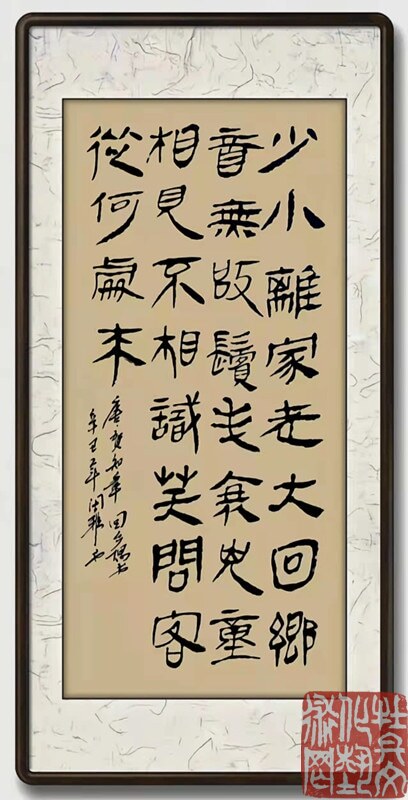 少小離家老大回鄉
音無改鬢毛衰兒童
相見不相識笑問客
從何處来
唐賀知章回乡偶书
辛丑年